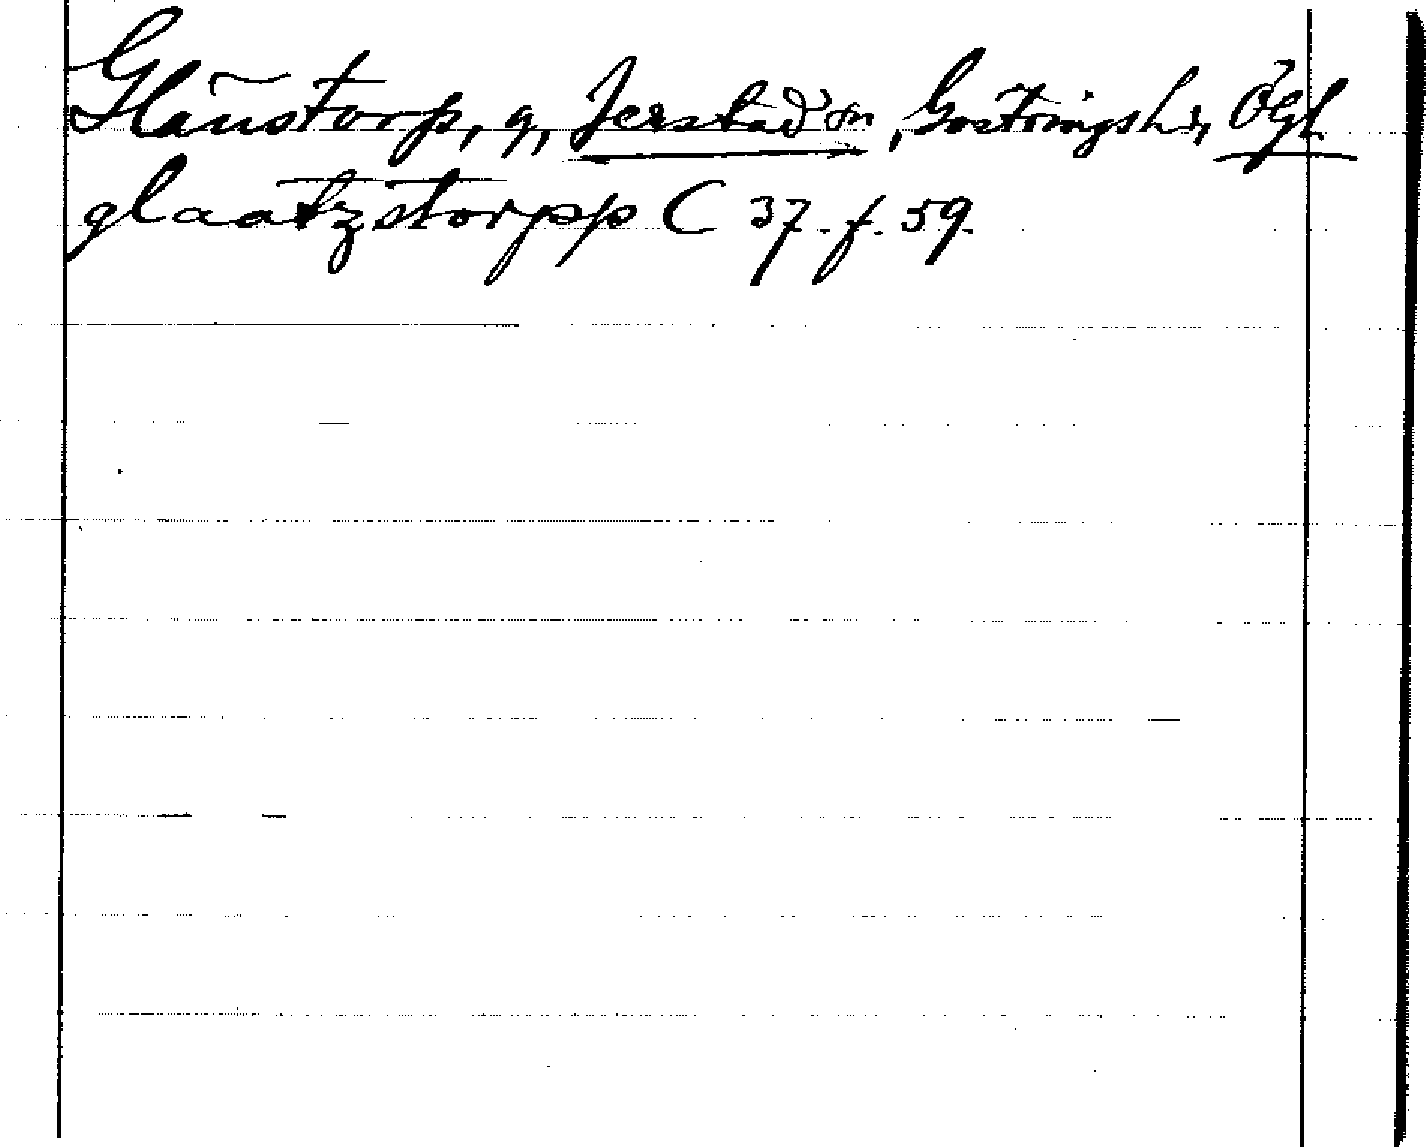 Glaustorp, g, Jerstad sn, Göstringshd, Ögl
glaatzstorpp C 37. f. 59.